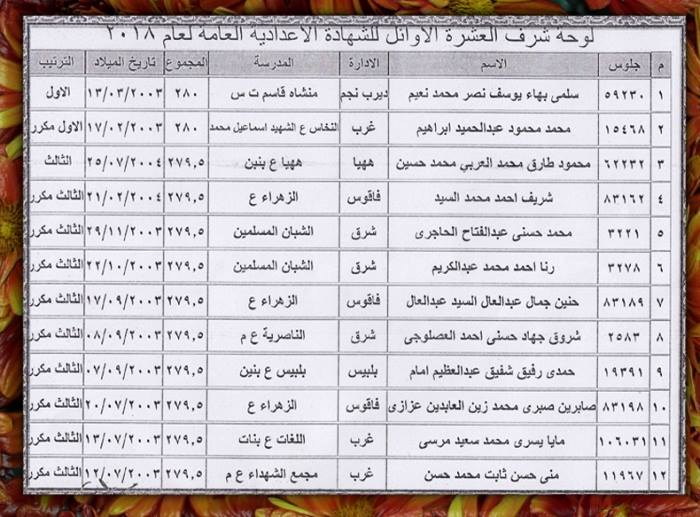 لوحة شرف العشرة الأوائل للشهادة الاعدادية العامة لعام ٢٠١٨
م جلوس الاسم الادارة المدرسة المجموع تاريخ الميلاد الترتيب
١ ٥٩٢٣٠ سلمى بهاء يوسف نصر محمد نعيم ديرب نجم منشاه قاسم ت س ٢٨٠ ١٣/٠٣/٢٠٠٣ الاول
٢ ١٥٤٦٨ محمد محمود عبدالحميد ابراهيم غرب النخاس ع الشهيد اسماعيل محمد ٢٨٠ ١٧/٠٢/٢٠٠٣ الاول مكرر
٣ ٦٢٢٣٢ محمود طارق محمد العربي محمد حسين ههيا ههيا ع بنين ٢٧٩,٥ ٢٥/٠٧/٢٠٠٤ الثالث
٤ ٨٣١٦٢ شريف احمد محمد السيد فاقوس الزهراء ع ٢٧٩,٥ ٢١/٠٢/٢٠٠٤ الثالث مكرر
٥ ٣٢٢١ محمد حسنى عبدالفتاح الحاجرى شرق الشبان المسلمين ٢٧٩,٥ ٢٩/١١/٢٠٠٣ الثالث مكرر
٦ ٣٢٧٨ رنا احمد محمد عبدالكريم شرق الشبان المسلمين ٢٧٩,٥ ٢٢/١٠/٢٠٠٣ الثالث مكرر
٧ ٨٣١٨٩ حنين جمال عبدالعال السيد عبدالعال فاقوس الزهراء ع ٢٧٩,٥ ١٧/٠٩/٢٠٠٣ الثالث مكرر
٨ ٢٥٨٣ شروق جهاد حسنى احمد العصلوجى شرق الناصرية ع م ٢٧٩,٥ ٠٨/٠٩/٢٠٠٣ الثالث مكرر
٩ ١٩٣٩١ حمدى رفيق شفيق عبدالعظيم امام بلبيس بلبيس ع بنين ٢٧٩,٥ ٠٧/٠٩/٢٠٠٣ الثالث مكرر
١٠ ٨٣١٩٨ صابرين صبرى محمد زين العابدين عزازى فاقوس الزهراء ع ٢٧٩,٥ ٢٠/٠٧/٢٠٠٣ الثالث مكرر
١١ ١٠٦٠٣١ مايا يسرى محمد سعيد مرسى غرب اللغات ع بنات ٢٧٩,٥ ١٣/٠٧/٢٠٠٣ الثالث مكرر
١٢ ١١٩٦٧ منى حسن ثابت محمد حسن غرب مجمع الشهداء ع م ٢٧٩,٥ ١٢/٠٧/٢٠٠٣ الثالث مكرر